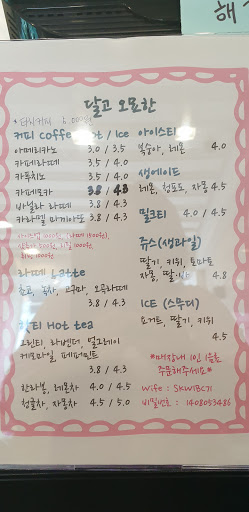 해
달고 오묘한
커피 coffee Hot / Ice
아메리카노 3.0 / 3.5
카페라떼 3.5 / 4.0
카푸치노 3.5 / 4.0
카페모카 3.8 / 4.3
바닐라 라떼 3.8 / 4.3
카라멜 마끼아또 3.8 / 4.3
라떼 Latte
초코, 녹차, 고구마, 오곡라떼
3.8 / 4.3
티 Hot tea
그린티, 라벤더, 얼그레이
캐모마일, 페퍼민트
3.8 / 4.3
한라봉, 레몬차 4.0 / 4.5
청귤차, 자몽차 4.5 / 5.0
아이스티
복숭아, 레몬 4.0
생에이드
레몬, 청포도, 자몽 4.5
밀크티 4.0 / 4.5
쥬스(생과일)
딸기, 키위, 토마토
자몽, 4.8
ICE (스무디)
요거트, 딸기, 키위
4.5
*매장내 1인 1음료
주문해주세요*
Wife : SKWIBC71
비밀번호 : 1408053486